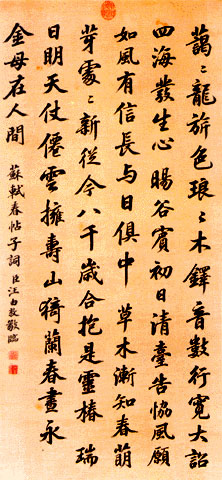 藹〻龍旂色琅〻木鐸音數行寬大詔
四海發生心暘谷賓初日清臺告協風願
如風有信長與日俱中 草木漸知春萌
芽處〻新從今八千歲合抱是靈椿 瑞
日明天仗僊雲擁壽山猗蘭春晝永
金母在人間 蘇軾春帖子詞 臣汪由敦敬臨